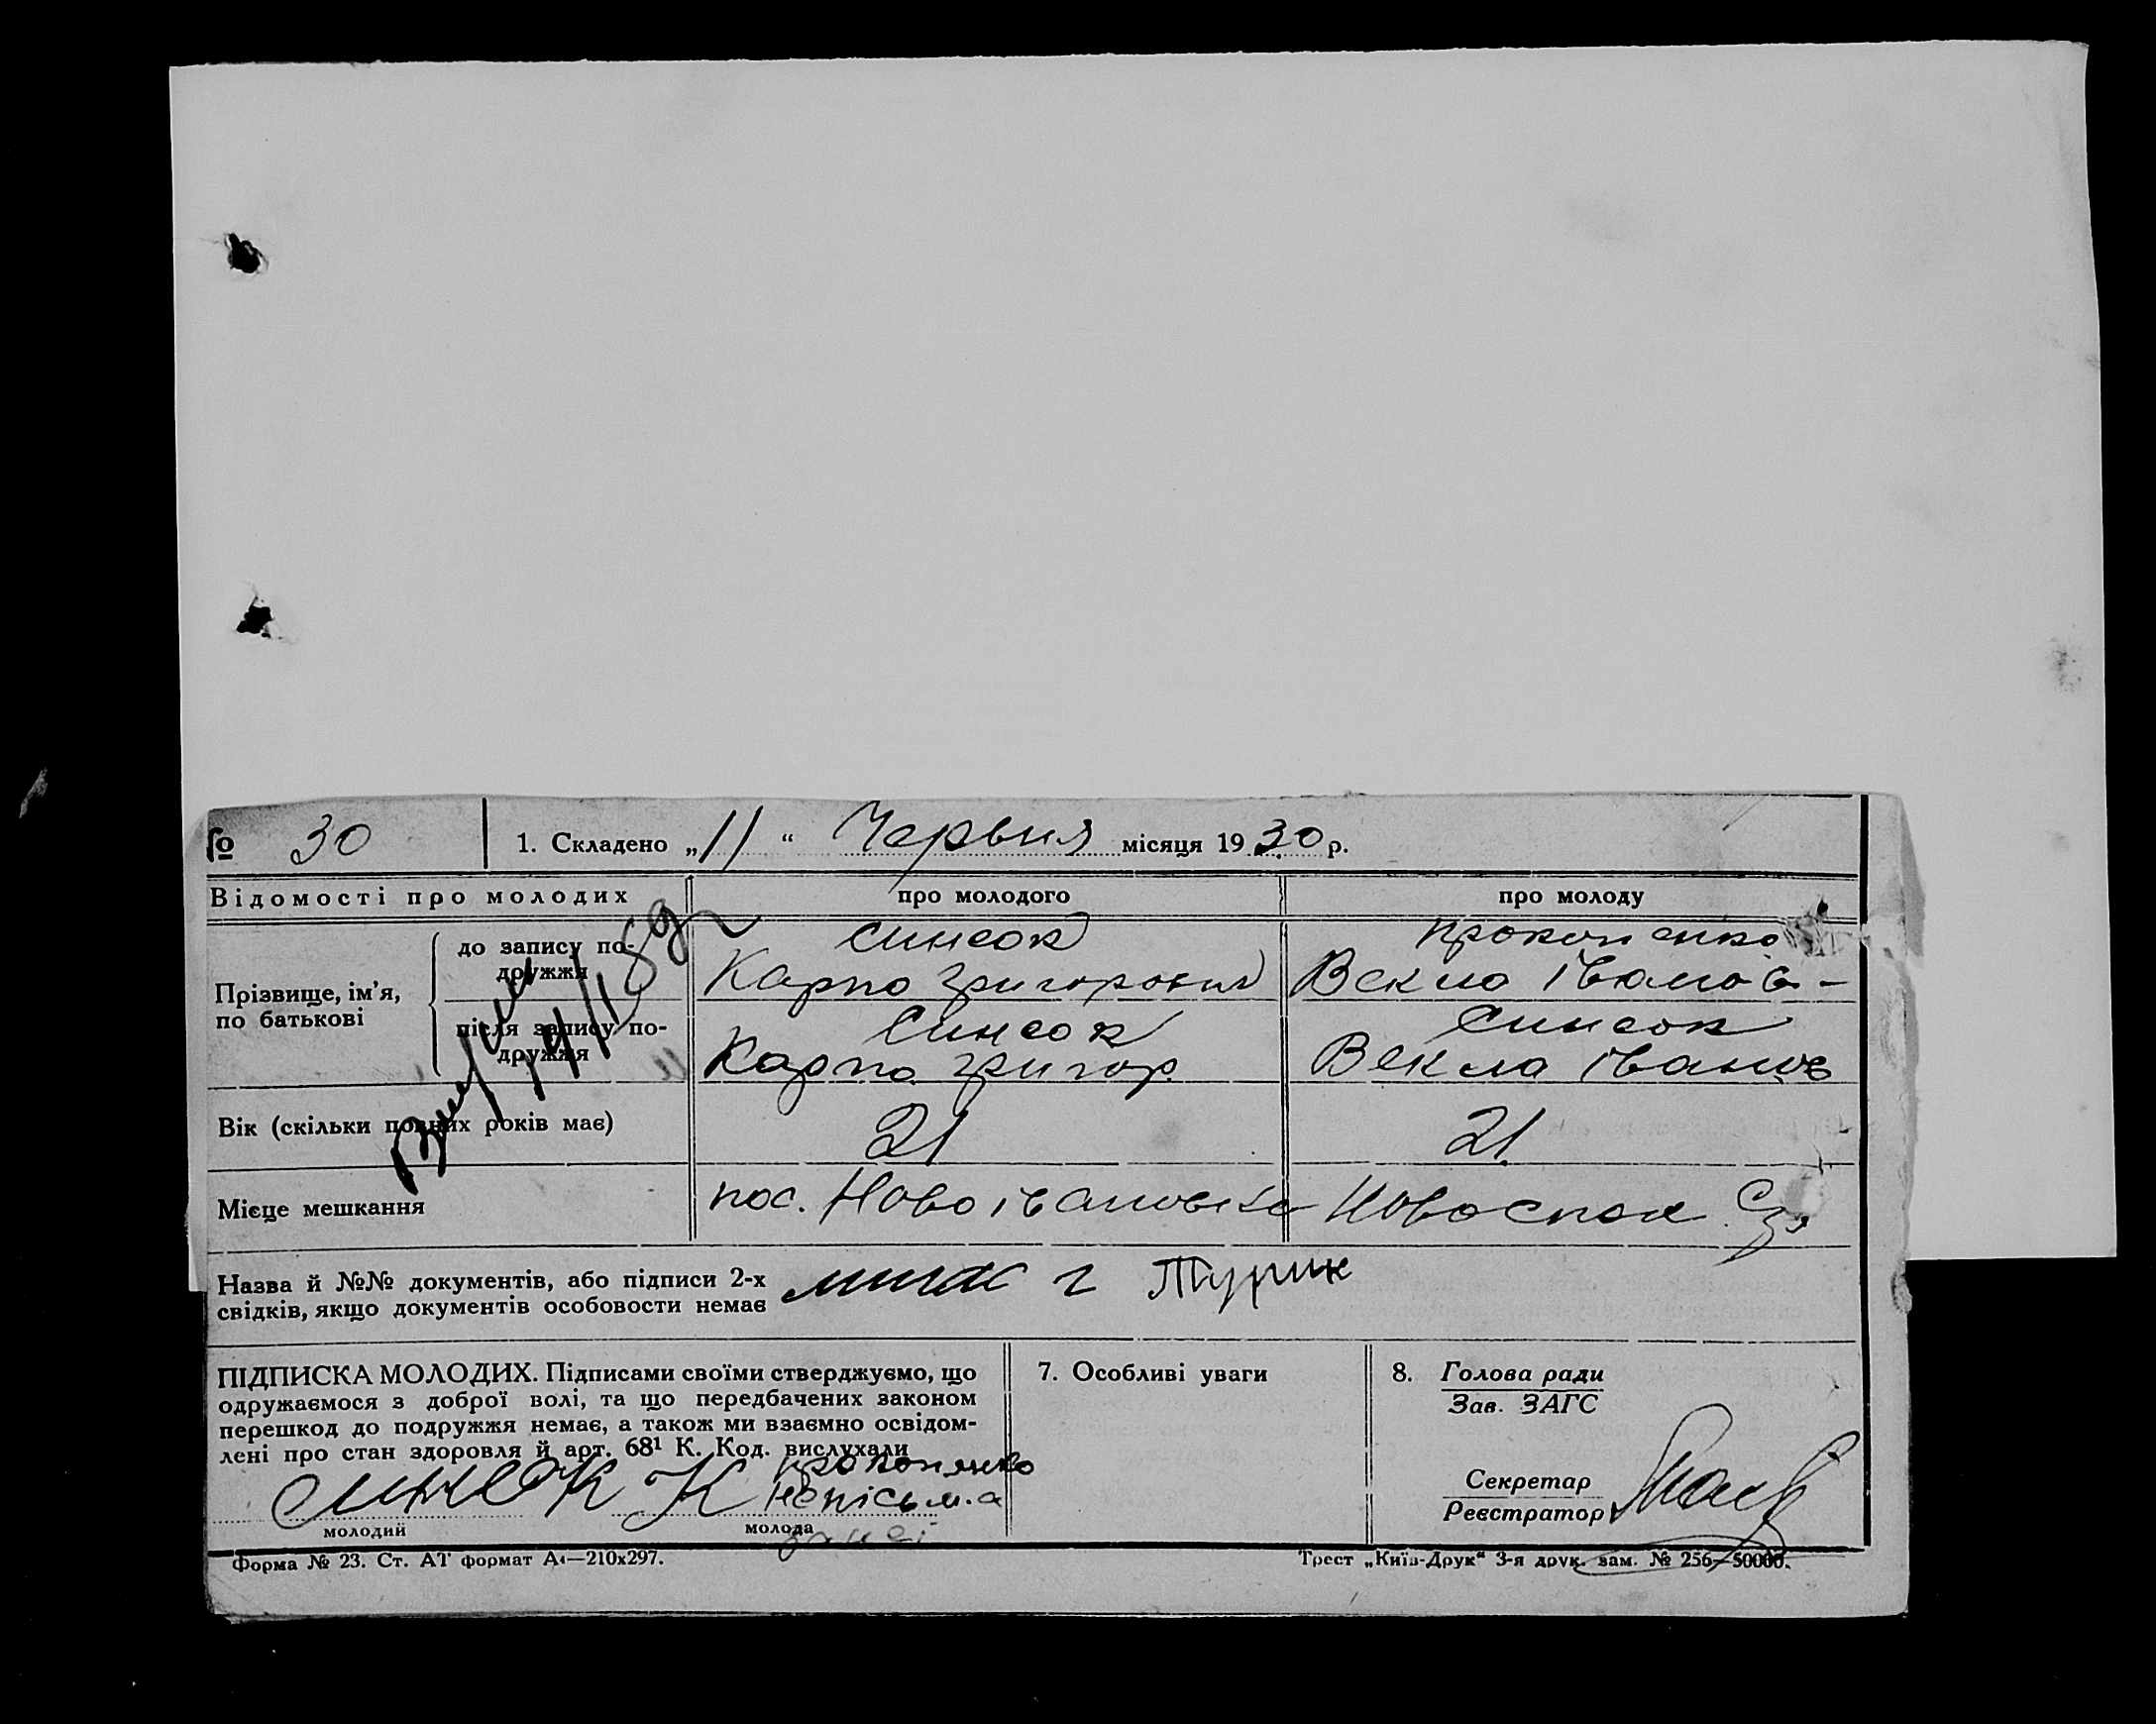 № 30
1. Складено „11“ Червня місяця 1930 р.
Відомості про молодих
про молодого
про молоду
Прізвище, ім’я,
по батькові
до запису по-
дружжя
Синеок
Карпо Григорович
Прокопенко
Векла Іванов-
після запису по-
дружжя
Синеок
Карпо Григор.
Синеок
Векла Іванов
Вік (скільки повних років має)
21
21
Місце мешкання
пос. Новоіванівка
Новоспас
Назва й №№ документів, або підписи 2-х
свідків, якщо документів особовости немає
ПІДПИСКА МОЛОДИХ. Підписами своїми стверджуємо, що
одружаємося з доброї волі, та що передбачених законом
перешкод до подружжя немає, а також ми взаємно освідом-
лені про стан здоровля й арт. 68¹ К. Код. вислухали
Синеок К
молодий
Прокопенко
непісьм.а
молода
7. Особливі уваги
8. Голова ради
Зав. ЗАГС
Секретар
Реєстратор
Форма № 23. Ст. АТ формат А4—210х297.
Трест „Київ-Друк“ 3-я друк. зам. № 256—50000.